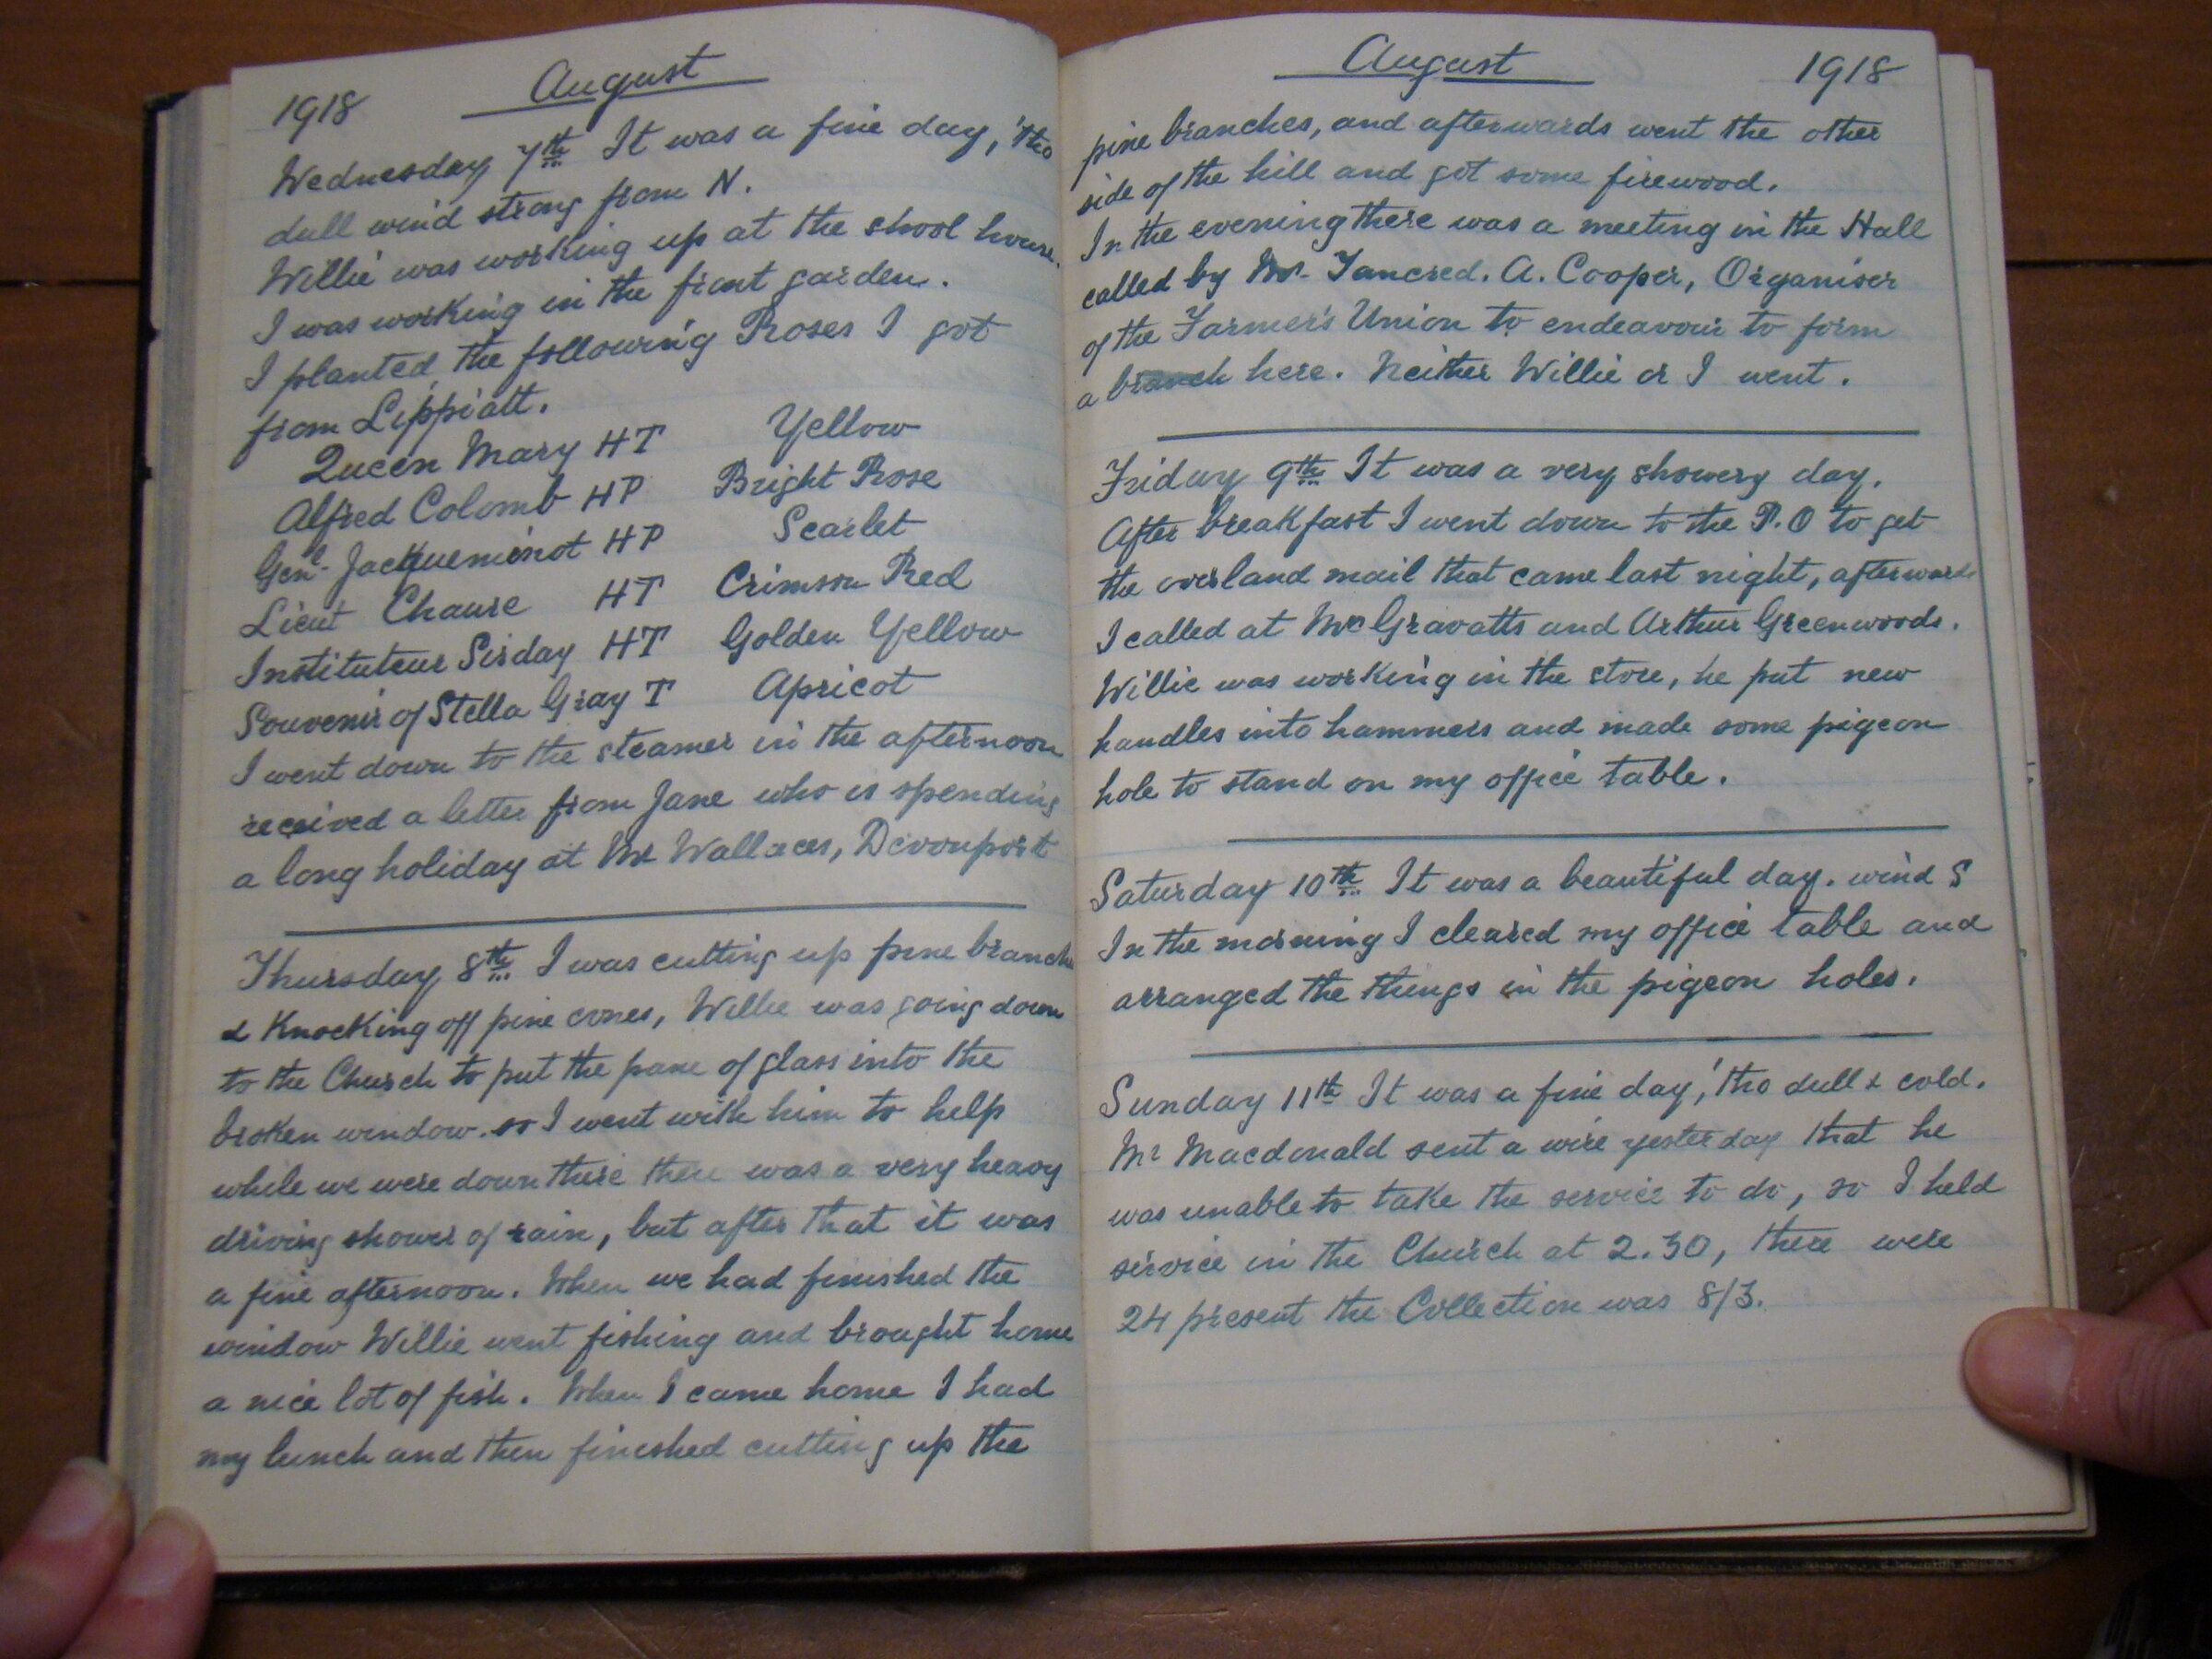 1918 August
Wednesday 7th It was a fine day, 'tho
dull wind strong from N.
Willie was working up at the shool house.
I was working in the front garden.
I planted the following Roses I got
from Lippiatt.
Queen Mary HT Yellow
Alfred Colomb HP Bright Rose
Genl. Jacqueminot HP Scarlet
Lieut Chaure HT Crimson Red
Instituteur Sirday HT Golden Yellow
Souvenir of Stella Gray T Apricot
I went down to the steamer in the afternoon
received a letter from Jane who is spending
a long holiday at Mr Wallaces, Devonport
Thursday 8th I was cutting up pine branche
& Knocking off pine cones, Willie was going down
to the Church to put the pane of glass into the
broken window. so I went with him to help
while we were down there there was a very heavy
driving shower of rain, but after that it was
a fine afternoon. When we had finished the
window Willie went fishing and brought home
a nice lot of fish. When I came home I had
my lunch and then finished cutting up the
August 1918
pine branches, and afterwards went the other
side of the hill and got some firewood.
In the evening there was a meeting in the Hall
called by Mr. Tancred. A. Cooper, Organiser
of the Farmer's Union to endeavour to form
a branch here. Neither Willie or I went.
Friday 9th It was a very showery day.
After breakfast I went down to the P.O to get
the overland mail that came last night, afterwards
I called at McGravatts and Arthur Greenwoods.
Willie was working in the store, he put new
handles into hammers and made some pigeon
hole to stand on my office table.
Saturday 10th It was a beautiful day. wind S
In the morning I cleared my office table and
arranged the things in the pigeon holes.
Sunday 11th It was a fine day, 'tho dull & cold.
Mr Macdonald sent a wire yesterday that he
was unable to take the service to do, so I held
service in the Church at 2.30, there were
24 present the Collection was 8/3.